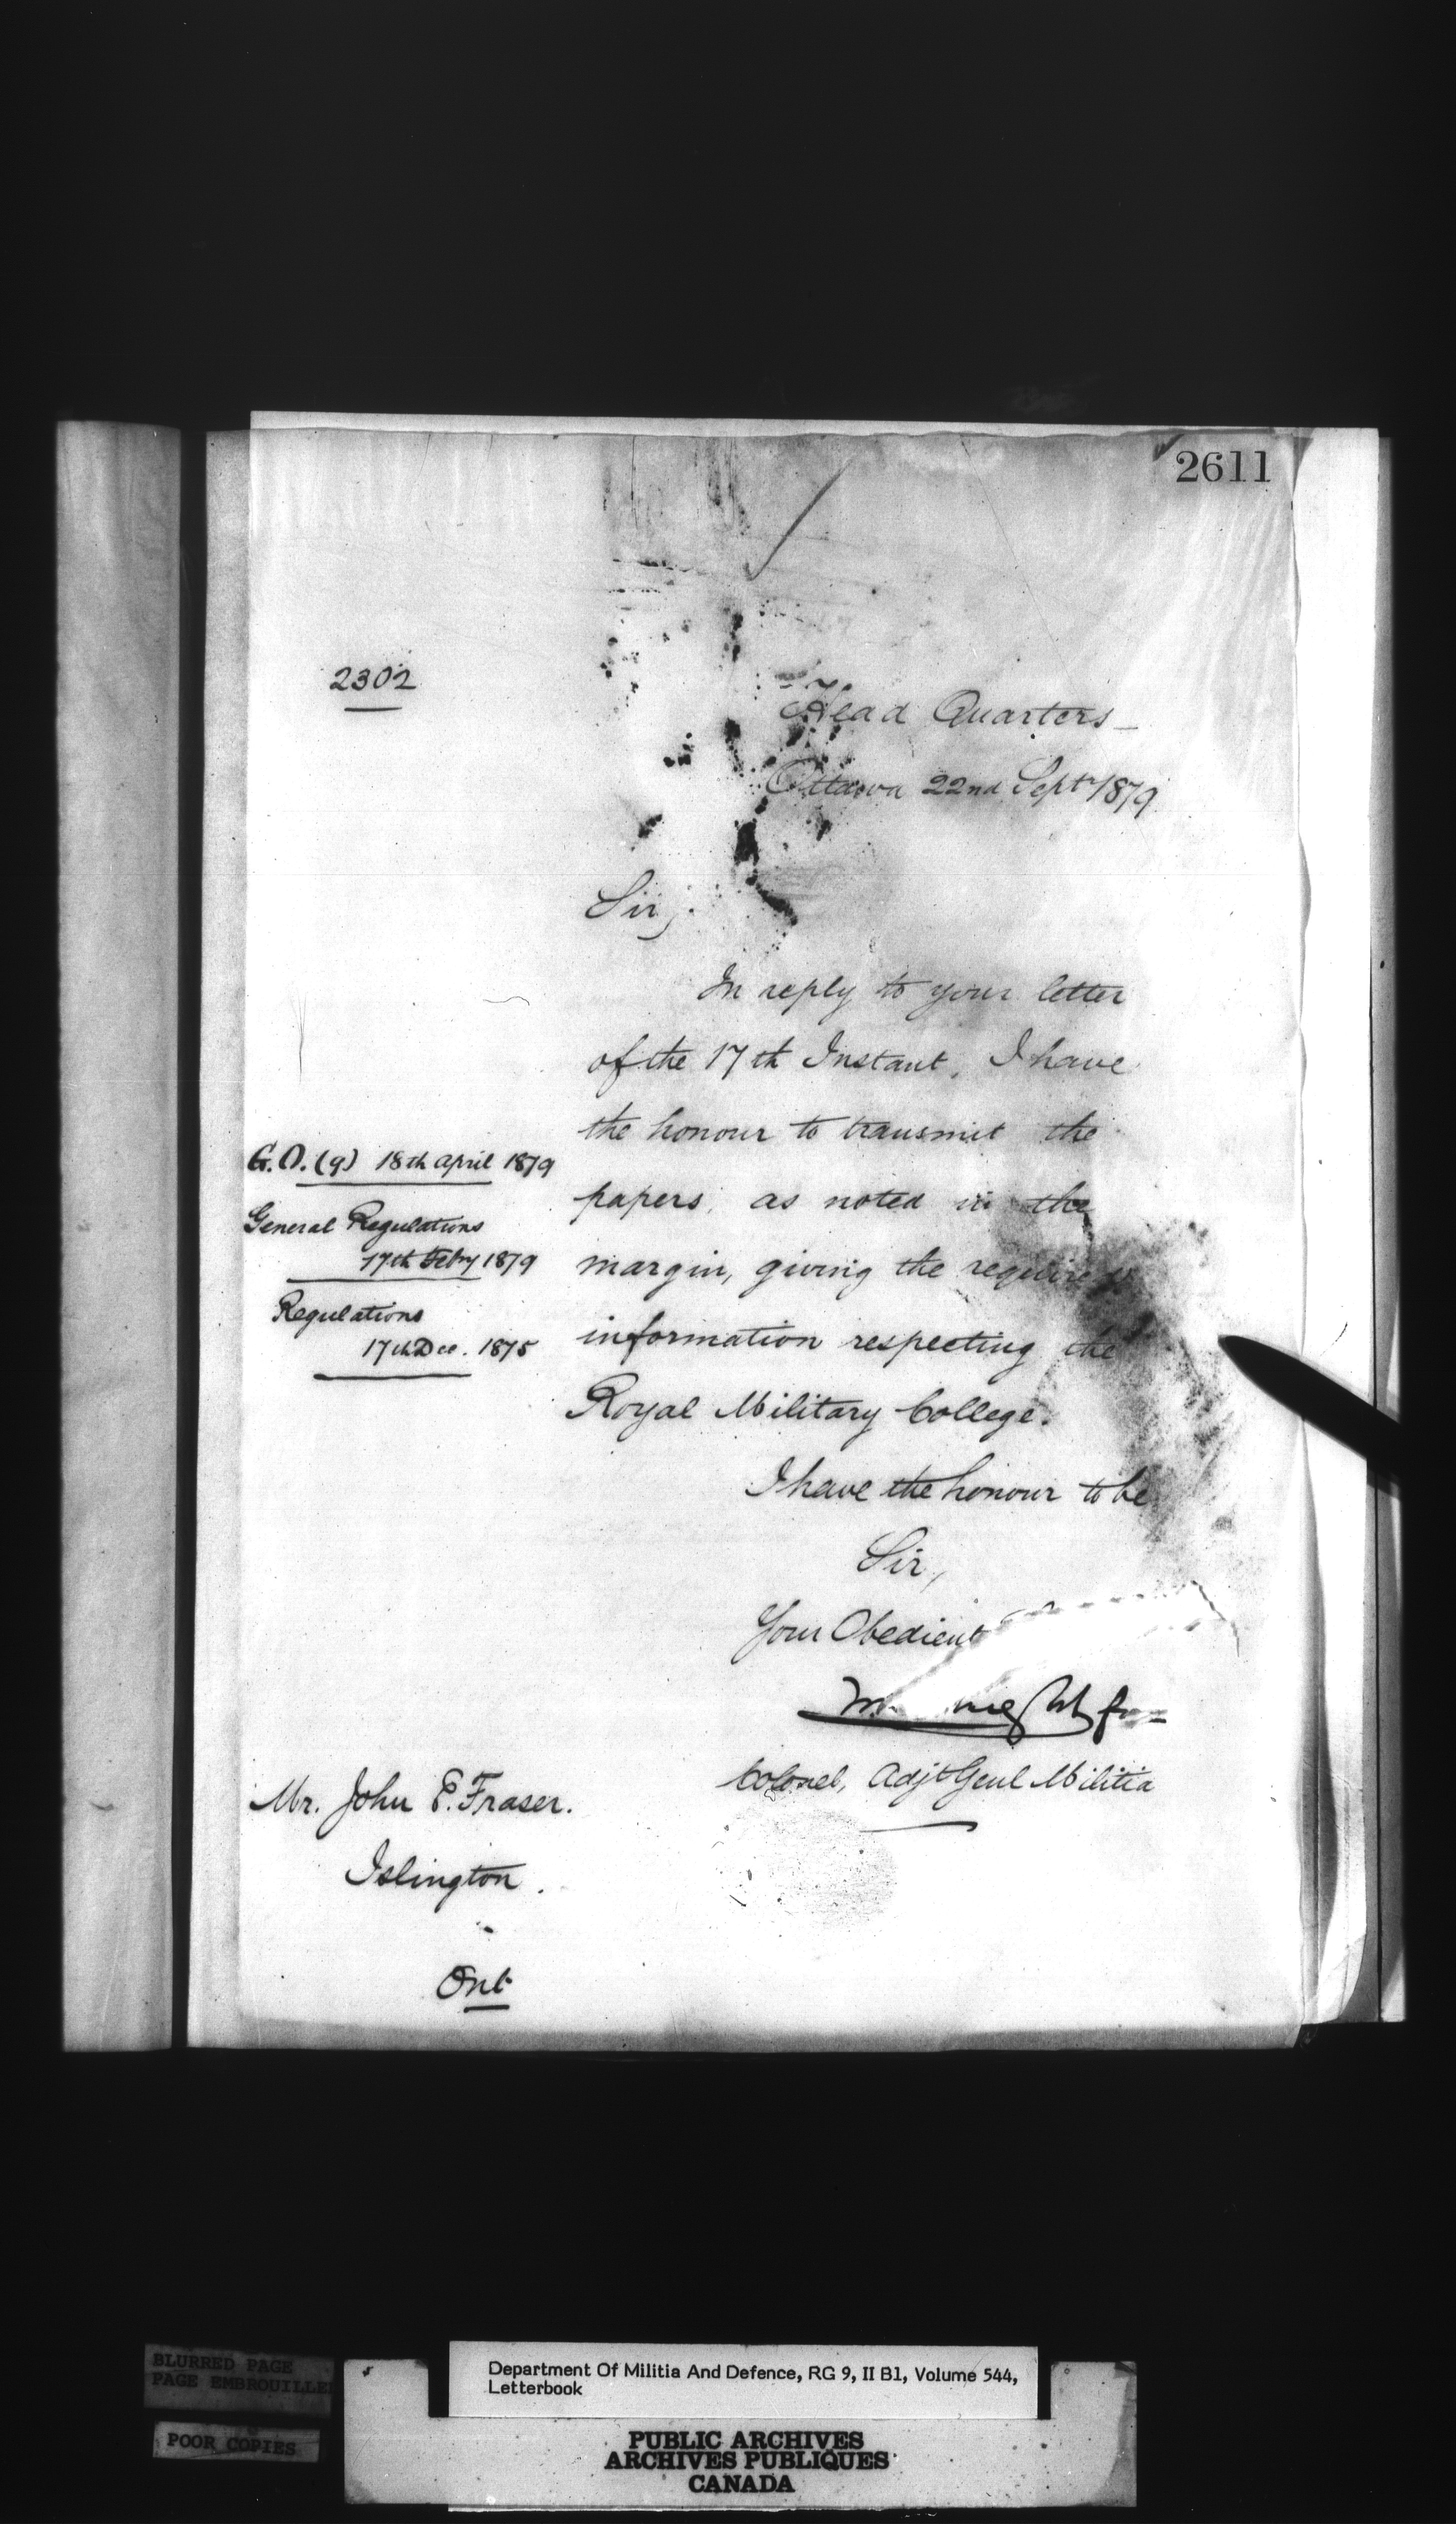 2611
2302
Head Quarters
Ottawa 22nd Septr 1879
Sir,
In reply to your letter
of the 17th Instant, I have
the honour to transmit the
papers, as noted in the
margin, giving the required
information respecting the
Royal Military College.
G.O. (9) 18th April 1879
General Regulations
17th Feby 1879
Regulations
17th Dec. 1875
I have the honour to be
Sir,
Your Obedient
Colonel, Adjt Genl Militia
Mr. John E. Fraser.
Islington.
Ont
BLURRED PAGE
PAGE EMBROUILLEE
POOR COPIES
Department Of Militia And Defence, RG 9, II B1, Volume 544,
Letterbook
PUBLIC ARCHIVES
ARCHIVES PUBLIQUES
CANADA